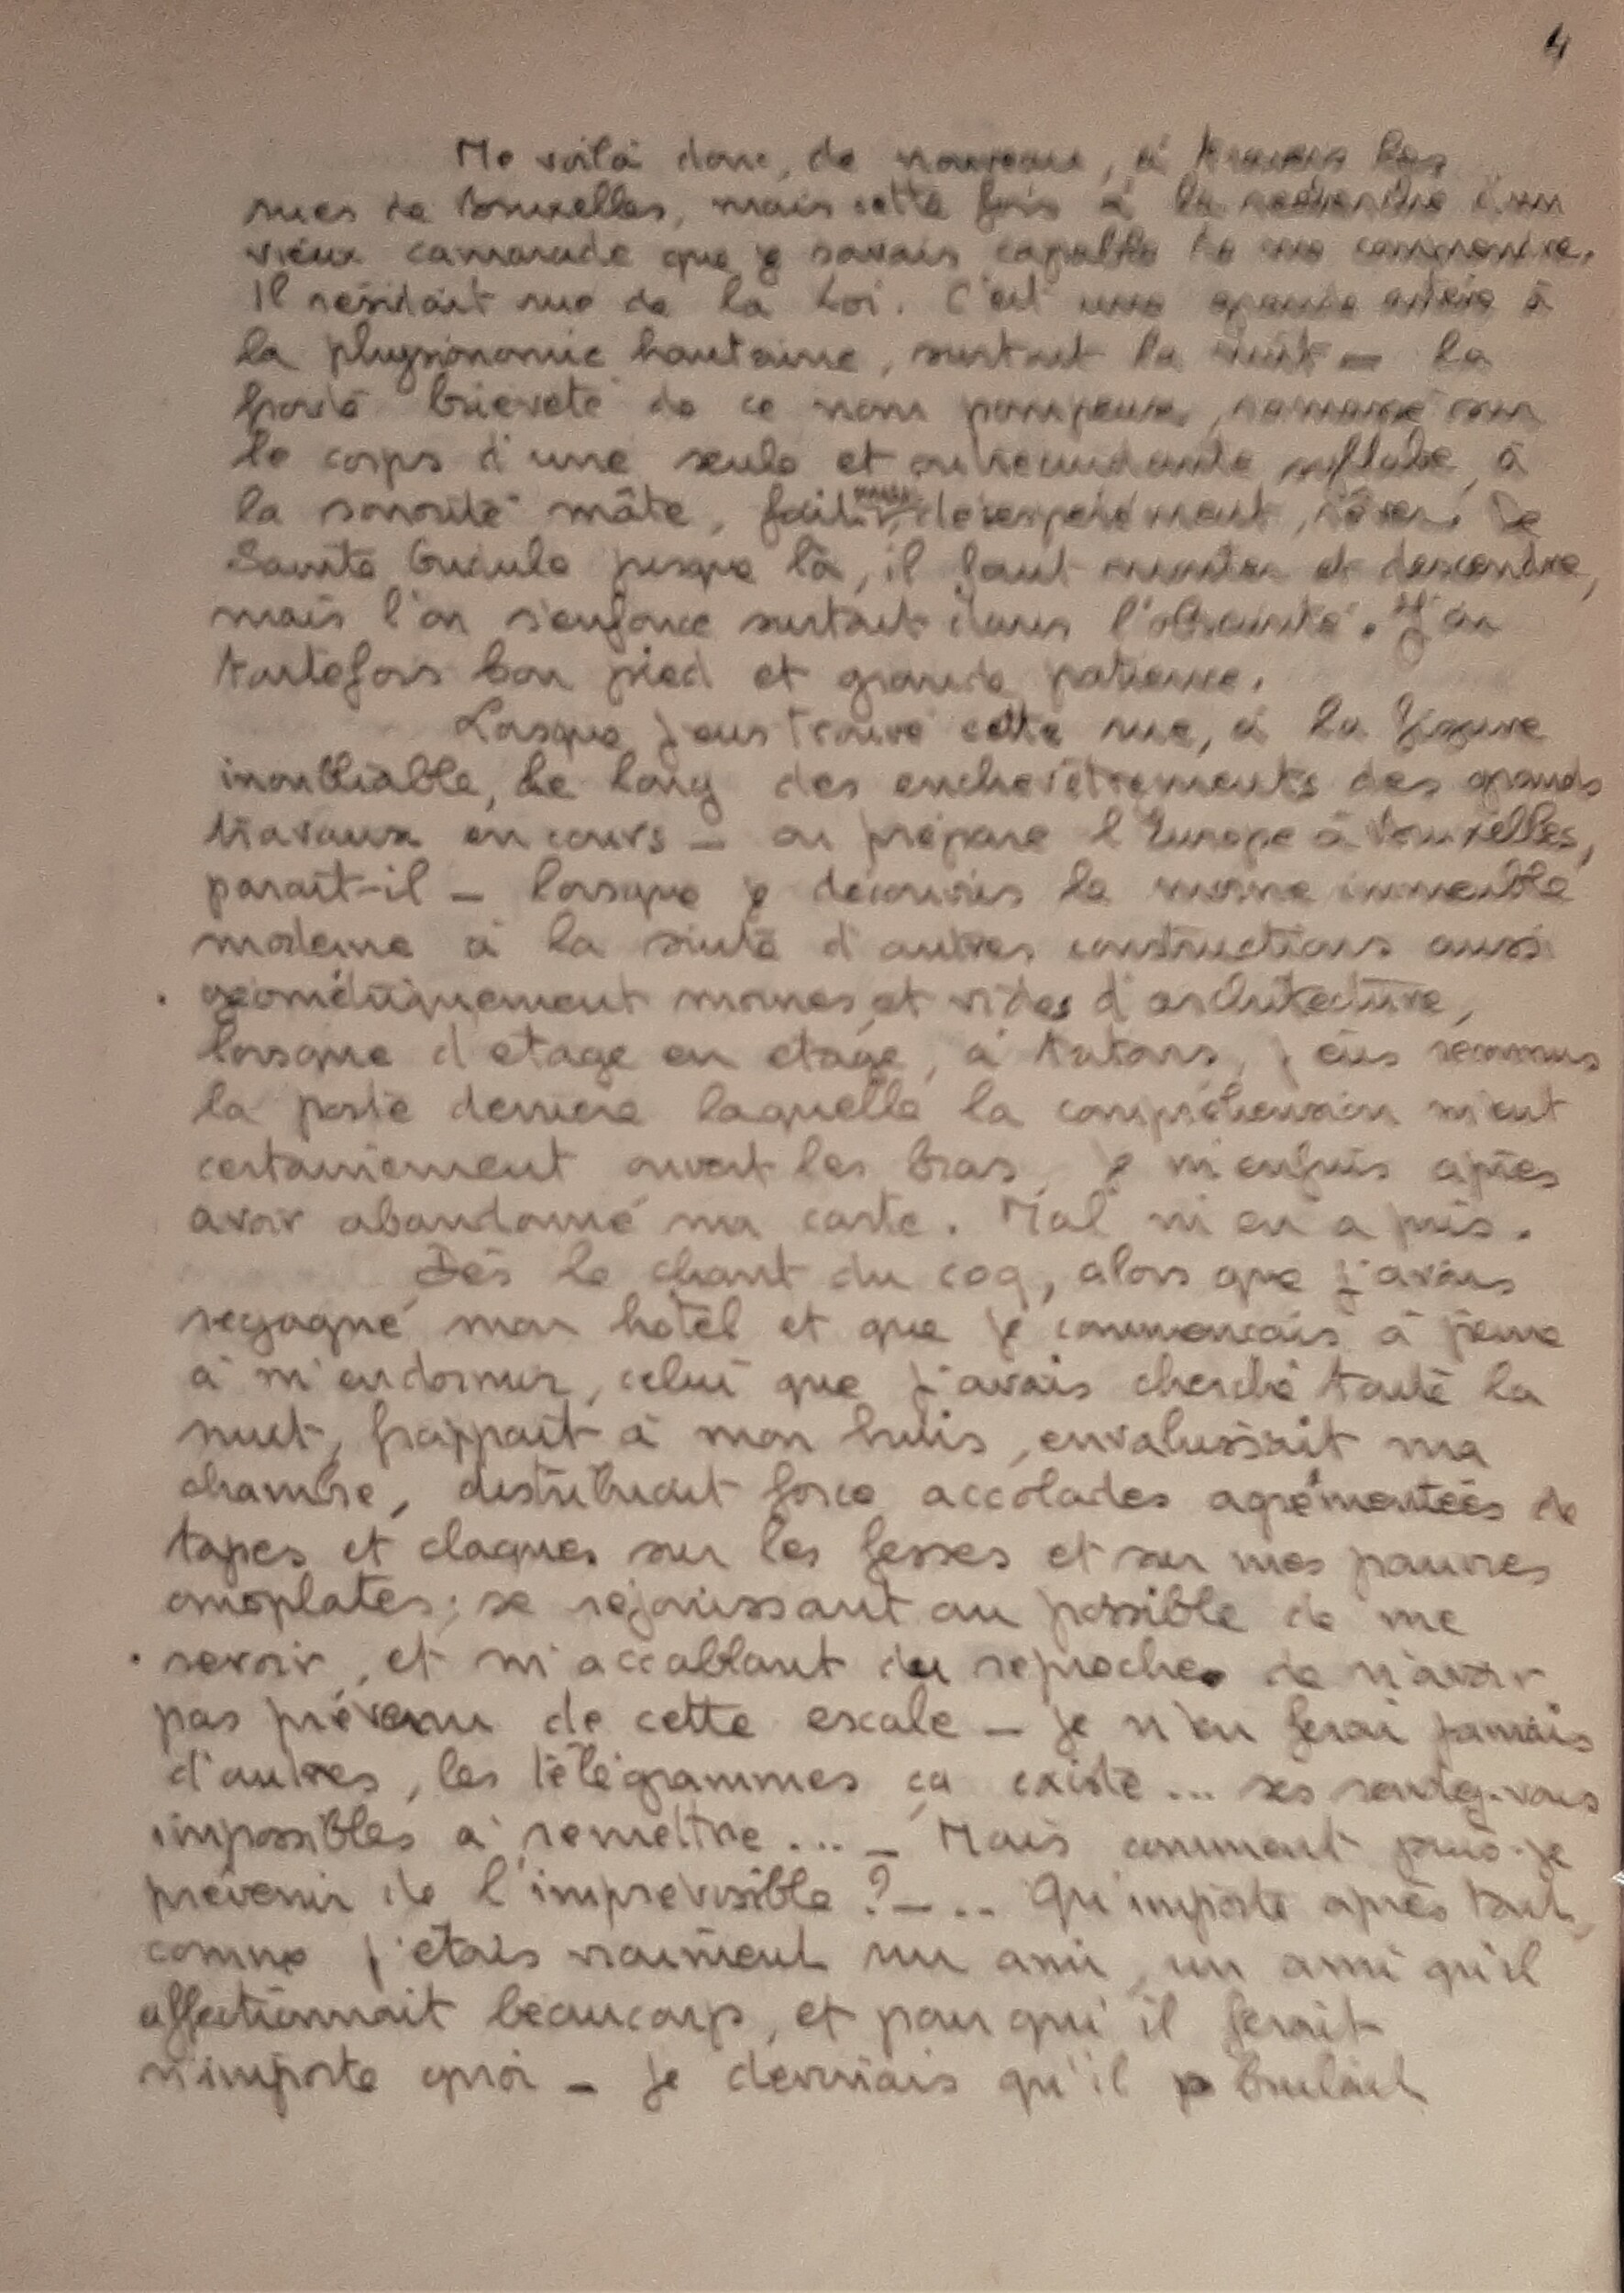 4
Me voilà donc, de nouveau, à travers les
rues de Bruxelles, mais cette fois à la recherche d'un
vieux camarade que je savais capable de me comprendre.
Il résidait rue de la Loi. C'est une grande artère à
la physionomie hautaine, surtout la nuit — la
brieveté de ce nom pompeux, ramassé sur
le corps d'une seule et outrecuidante syllabe, à
la sonorité mâte, fait désespérément rêver. De
Sainte Gudule jusque là, il faut monter et descendre,
mais l'on s'enfonce surtout dans l'obscurité. J'ai
toutefois bon pied et grande patience.
Lorsque j'eus trouvé cette rue, à la figure
inoubliable, le long des enchevêtrements des grands
travaux en cours — on prépare l'Europe à Bruxelles,
parait-il — lorsque je découvris le morne immeuble
moderne à la suite d'autres constructions aussi
géométriquement mornes et vides d'architecture,
lorsque d'étage en étage, à tatons, j'eus reconnus
la porte derrière laquelle la compréhension m'eut
certainement ouvert les bras, je m'enfuis après
avoir abandonné ma carte. Mal m'en a pris.
Dès le chant du coq, alors que j'avais
regagné mon hotel et que je commencais à peine
à m'endormir, celui que j'avais cherché toute la
nuit, frappait à mon huis, envahissait ma
chambre, distribuait force accolades agrémentées de
tapes et claques sur les fesses et sur mes pauvres
omoplates; se rejouissant au possible de me
revoir, et m'accablant de reproches de n'avoir
pas prévenu de cette escale — je n'en ferai jamais
d'autres, les télégrammes ça existe... ses rendez-vous
impossibles à remettre... — Mais comment puis-je
prévenir de l'imprévisible ? — .. Qu'importe après tout,
comme j'étais vraiment un ami, un ami qu'il
affectionnait beaucoup, et pour qui il ferait
n'importe quoi — je devinais qu'il brulait